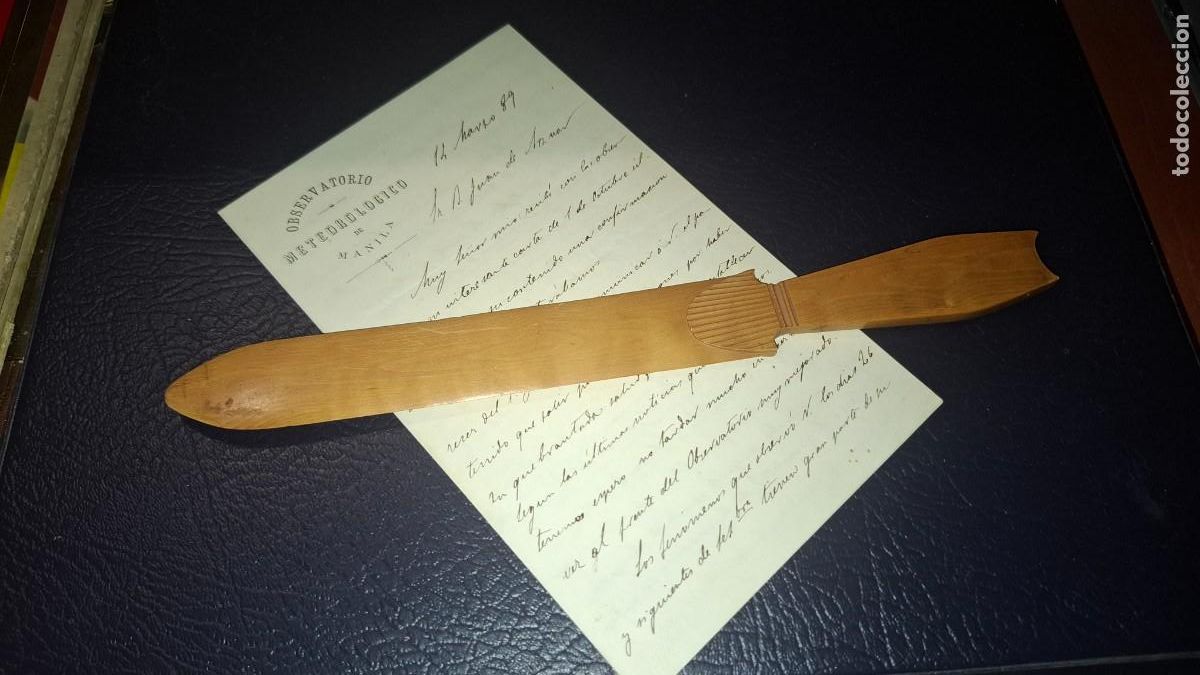 OBSERVATORIO
METEOROLOGICO
DE
MANILA
14 Marzo 89
Sr. D. Juan de Aznar
Muy Señor mio: recibí con
su interesante carta de 1 de Octubre úl.
su contenido una confirmacion
comunicar á V. el pa
por haber
recer del
tenido que
su quebrantada salud
segun las últimas noticias que
tenemos espero no tardar mucho en
ver al frente del Observatorio muy mejorado.
Los fenómenos que observó V. los dias 26
y siguientes de Set.bre tienen gran parte de su
todocoleccion